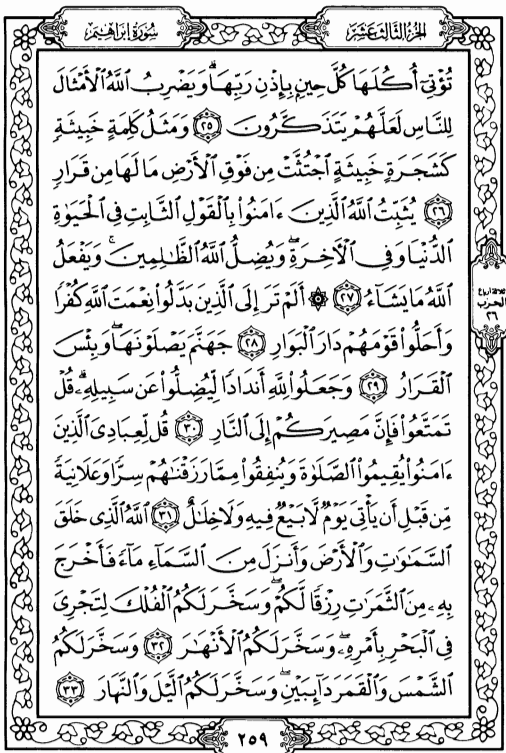 الجزء الثالث عشر
سورة إبراهيم
تُؤْتِىٓ أُكُلَهَا كُلَّ حِينٍۭ بِإِذْنِ رَبِّهَا ۗ وَيَضْرِبُ ٱللَّهُ ٱلْأَمْثَالَ
لِلنَّاسِ لَعَلَّهُمْ يَتَذَكَّرُونَ ٢٥ وَمَثَلُ كَلِمَةٍ خَبِيثَةٍ
كَشَجَرَةٍ خَبِيثَةٍ ٱجْتُثَّتْ مِن فَوْقِ ٱلْأَرْضِ مَا لَهَا مِن قَرَارٍ
٢٦ يُثَبِّتُ ٱللَّهُ ٱلَّذِينَ ءَامَنُوا۟ بِٱلْقَوْلِ ٱلثَّابِتِ فِى ٱلْحَيَوٰةِ
ٱلدُّنْيَا وَفِى ٱلْـَٔاخِرَةِ ۖ وَيُضِلُّ ٱللَّهُ ٱلظَّـٰلِمِينَ ۚ وَيَفْعَلُ
ٱللَّهُ مَا يَشَآءُ ٢٧ ۞ أَلَمْ تَرَ إِلَى ٱلَّذِينَ بَدَّلُوا۟ نِعْمَتَ ٱللَّهِ كُفْرًا
وَأَحَلُّوا۟ قَوْمَهُمْ دَارَ ٱلْبَوَارِ ٢٨ جَهَنَّمَ يَصْلَوْنَهَا ۖ وَبِئْسَ
ٱلْقَرَارُ ٢٩ وَجَعَلُوا۟ لِلَّهِ أَندَادًا لِّيُضِلُّوا۟ عَن سَبِيلِهِۦ ۗ قُلْ
تَمَتَّعُوا۟ فَإِنَّ مَصِيرَكُمْ إِلَى ٱلنَّارِ ٣٠ قُل لِّعِبَادِىَ ٱلَّذِينَ
ءَامَنُوا۟ يُقِيمُوا۟ ٱلصَّلَوٰةَ وَيُنفِقُوا۟ مِمَّا رَزَقْنَـٰهُمْ سِرًّا وَعَلَانِيَةً
مِّن قَبْلِ أَن يَأْتِىَ يَوْمٌ لَّا بَيْعٌ فِيهِ وَلَا خِلَـٰلٌ ٣١ ٱللَّهُ ٱلَّذِى خَلَقَ
ٱلسَّمَـٰوَٰتِ وَٱلْأَرْضَ وَأَنزَلَ مِنَ ٱلسَّمَآءِ مَآءً فَأَخْرَجَ
بِهِۦ مِنَ ٱلثَّمَرَٰتِ رِزْقًا لَّكُمْ ۖ وَسَخَّرَ لَكُمُ ٱلْفُلْكَ لِتَجْرِىَ
فِى ٱلْبَحْرِ بِأَمْرِهِۦ ۖ وَسَخَّرَ لَكُمُ ٱلْأَنْهَـٰرَ ٣٢ وَسَخَّرَ لَكُمُ
ٱلشَّمْسَ وَٱلْقَمَرَ دَآئِبَيْنِ ۖ وَسَخَّرَ لَكُمُ ٱلَّيْلَ وَٱلنَّهَارَ ٣٣
ثلاثة أرباع
الحزب
٢٦
٢٥٩